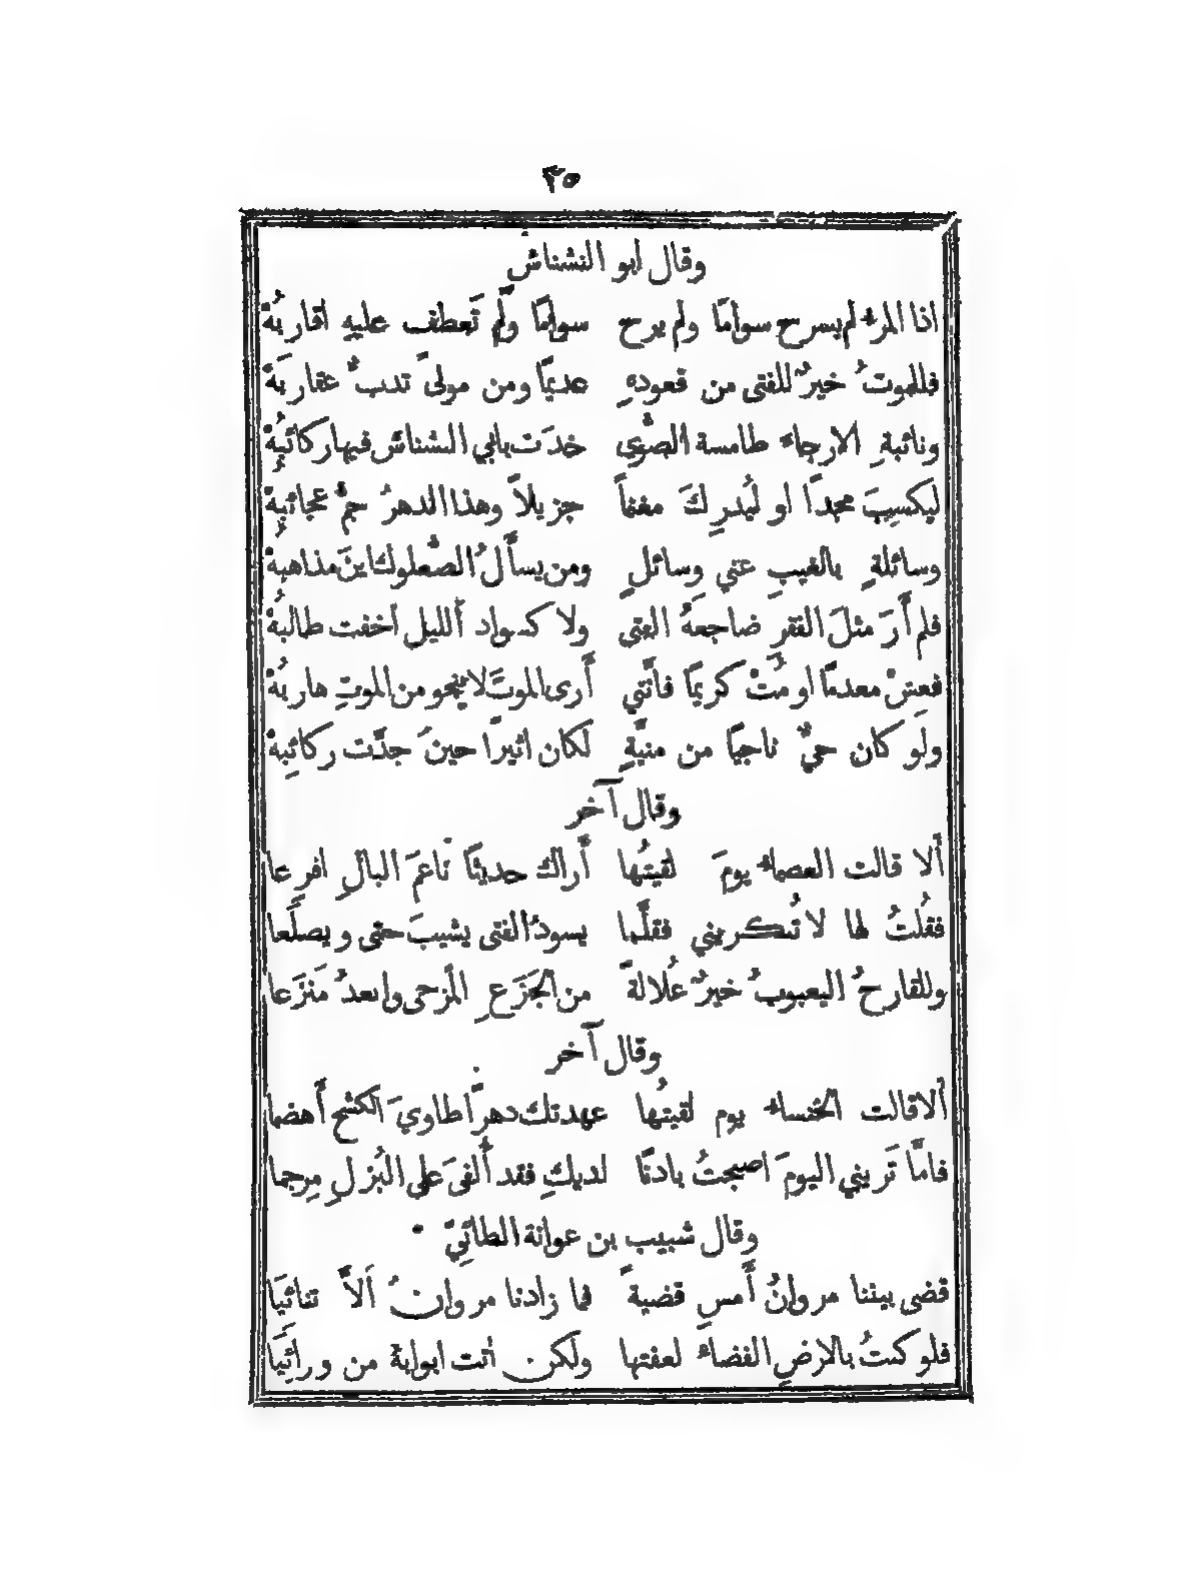 ٣٥
وقال ابو النشناش
اذا المرء لم يسرح سوامًا ولم يرح سوامًا ولَم تَعطف عليهِ اقاربُهْ
فللموتُ خيرٌ للفتى من قعودهِ عديمًا ومن مولىً تدبُّ عقاربَهْ
ونائبةِ الارجاءَ طامسة الصُّوى خدَت بابي النشناش فيها ركائبُهْ
ليكسِبَ مجدًا او ليُدرِكَ مغنماً جزيلاً وهذا الدهرُ جمٌّ عجائبُهْ
وسائلةٍ بالغيبِ عني وسائلٍ ومن يسأَلُ الصُّعلوك اينَ مذاهبُهْ
فلم أَرَ مثلَ الفقرِ ضاجعَهُ الفتى ولا كسواد ألليل أخفت طالبُهْ
فعِشْ معدمًا او مُتْ كريمًا فانَّني أَرى الموتَ لا ينجو من الموتِ هاربُهْ
ولَو كان حيٌّ ناجيًا من منيَّةٍ لكان اثيرًا حينَ جدَّت ركائِبهْ
وقال آخر
ألا قالت العصماء يومَ لقيتُها أَراك حديثًا ناعمَ البالِ افرعا
فقُلتُ لها لا تُنكريني فقلَّما يسودُ الفتى يشيبَ حتى ويصلَعا
وللقارحُ اليعبوبُ خيرٌ عُلالةً من الجَزَعِ المزحى وابعدُ مَنزَعا
وقال آخر
ألا قالت الخنساء يوم لقيتُها عهدتك دهرًا طاويَ الكشحِ أهضما
فامَّا تَريني اليومَ اصبحتُ بادنًا لديكِ فقد أُلفىَ على البُزلِ مِرجما
وقال شبيب بن عوانة الطائيّ
قضى بيننا مروانُ أَمسِ قضيةً فما زادنا مروانُ ألاَّ تنائيَا
فلو كنتُ بالارضِ الفضاءُ لعفتها ولكن أتت ابوابهُ من ورائيَا